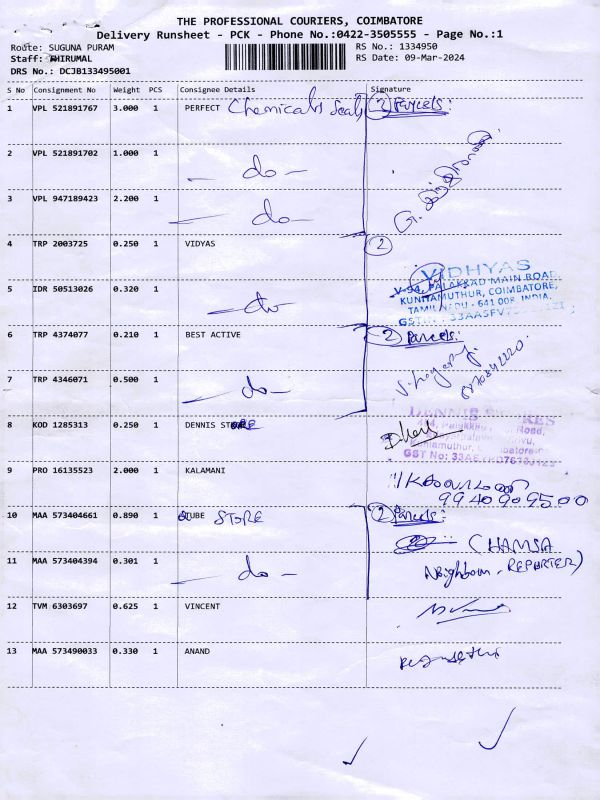 THE PROFESSIONAL COURIERS, COIMBATORE
Delivery Runsheet - PCK - Phone No.:0422-3505555 - Page No.:1
Route: SUGUNA PURAM
RS No.: 1334950
Staff: THIRUMAL
RS Date: 09-Mar-2024
DRS No.: DCJB133495001
S No Consignment No Weight PCS Consignee Details Signature
1 VPL 521891767 3.000 1 PERFECT Chemicals Seals 2 Parcels:
2 VPL 521891702 1.000 1 - do -
3 VPL 947189423 2.200 1 - do -
4 TRP 2003725 0.250 1 VIDYAS 2
VIDHYAS
V-94, PALAKKAD MAIN ROAD,
KUNIAMUTHUR, COIMBATORE,
TAMIL NADU - 641 008. INDIA.
5 IDR 50513026 0.320 1 - do -
6 TRP 4374077 0.210 1 BEST ACTIVE 2 Parcels:
7 TRP 4346071 0.500 1 - do -
8 KOD 1285313 0.250 1 DENNIS STORE
DENNIS
9 PRO 16135523 2.000 1 KALAMANI
9940909500
10 MAA 573404661 0.890 1 CUBE STORE 2 Parcels:
(HAMSA
11 MAA 573404394 0.301 1 - do - Neighbour - REPORTER)
12 TVM 6303697 0.625 1 VINCENT
13 MAA 573490033 0.330 1 ANAND